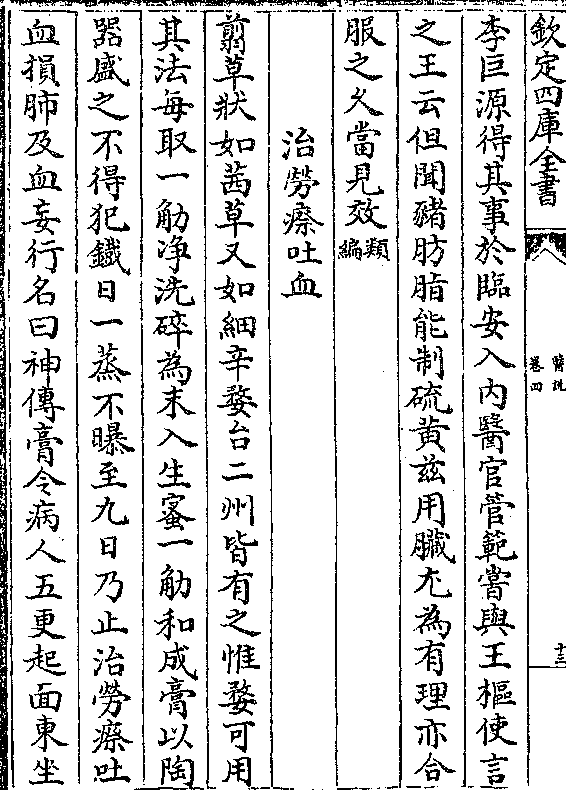 欽定四庫全書
醫說
卷四
十三
李巨源得其事於臨安入內醫官管範嘗與王樞使言
之王云但聞豬肪脂能制硫黄兹用臟尤為有理亦合
服之久當見效類編
治勞瘵吐血
翦草狀如茜草又如細辛婺台二州皆有之惟婺可用
其法每取一觔净洗碎為末入生蜜一觔和成膏以陶
器盛之不得犯鐵日一蒸不曝至九日乃止治勞瘵吐
血損肺及血妄行名曰神傳膏令病人五更起面東坐